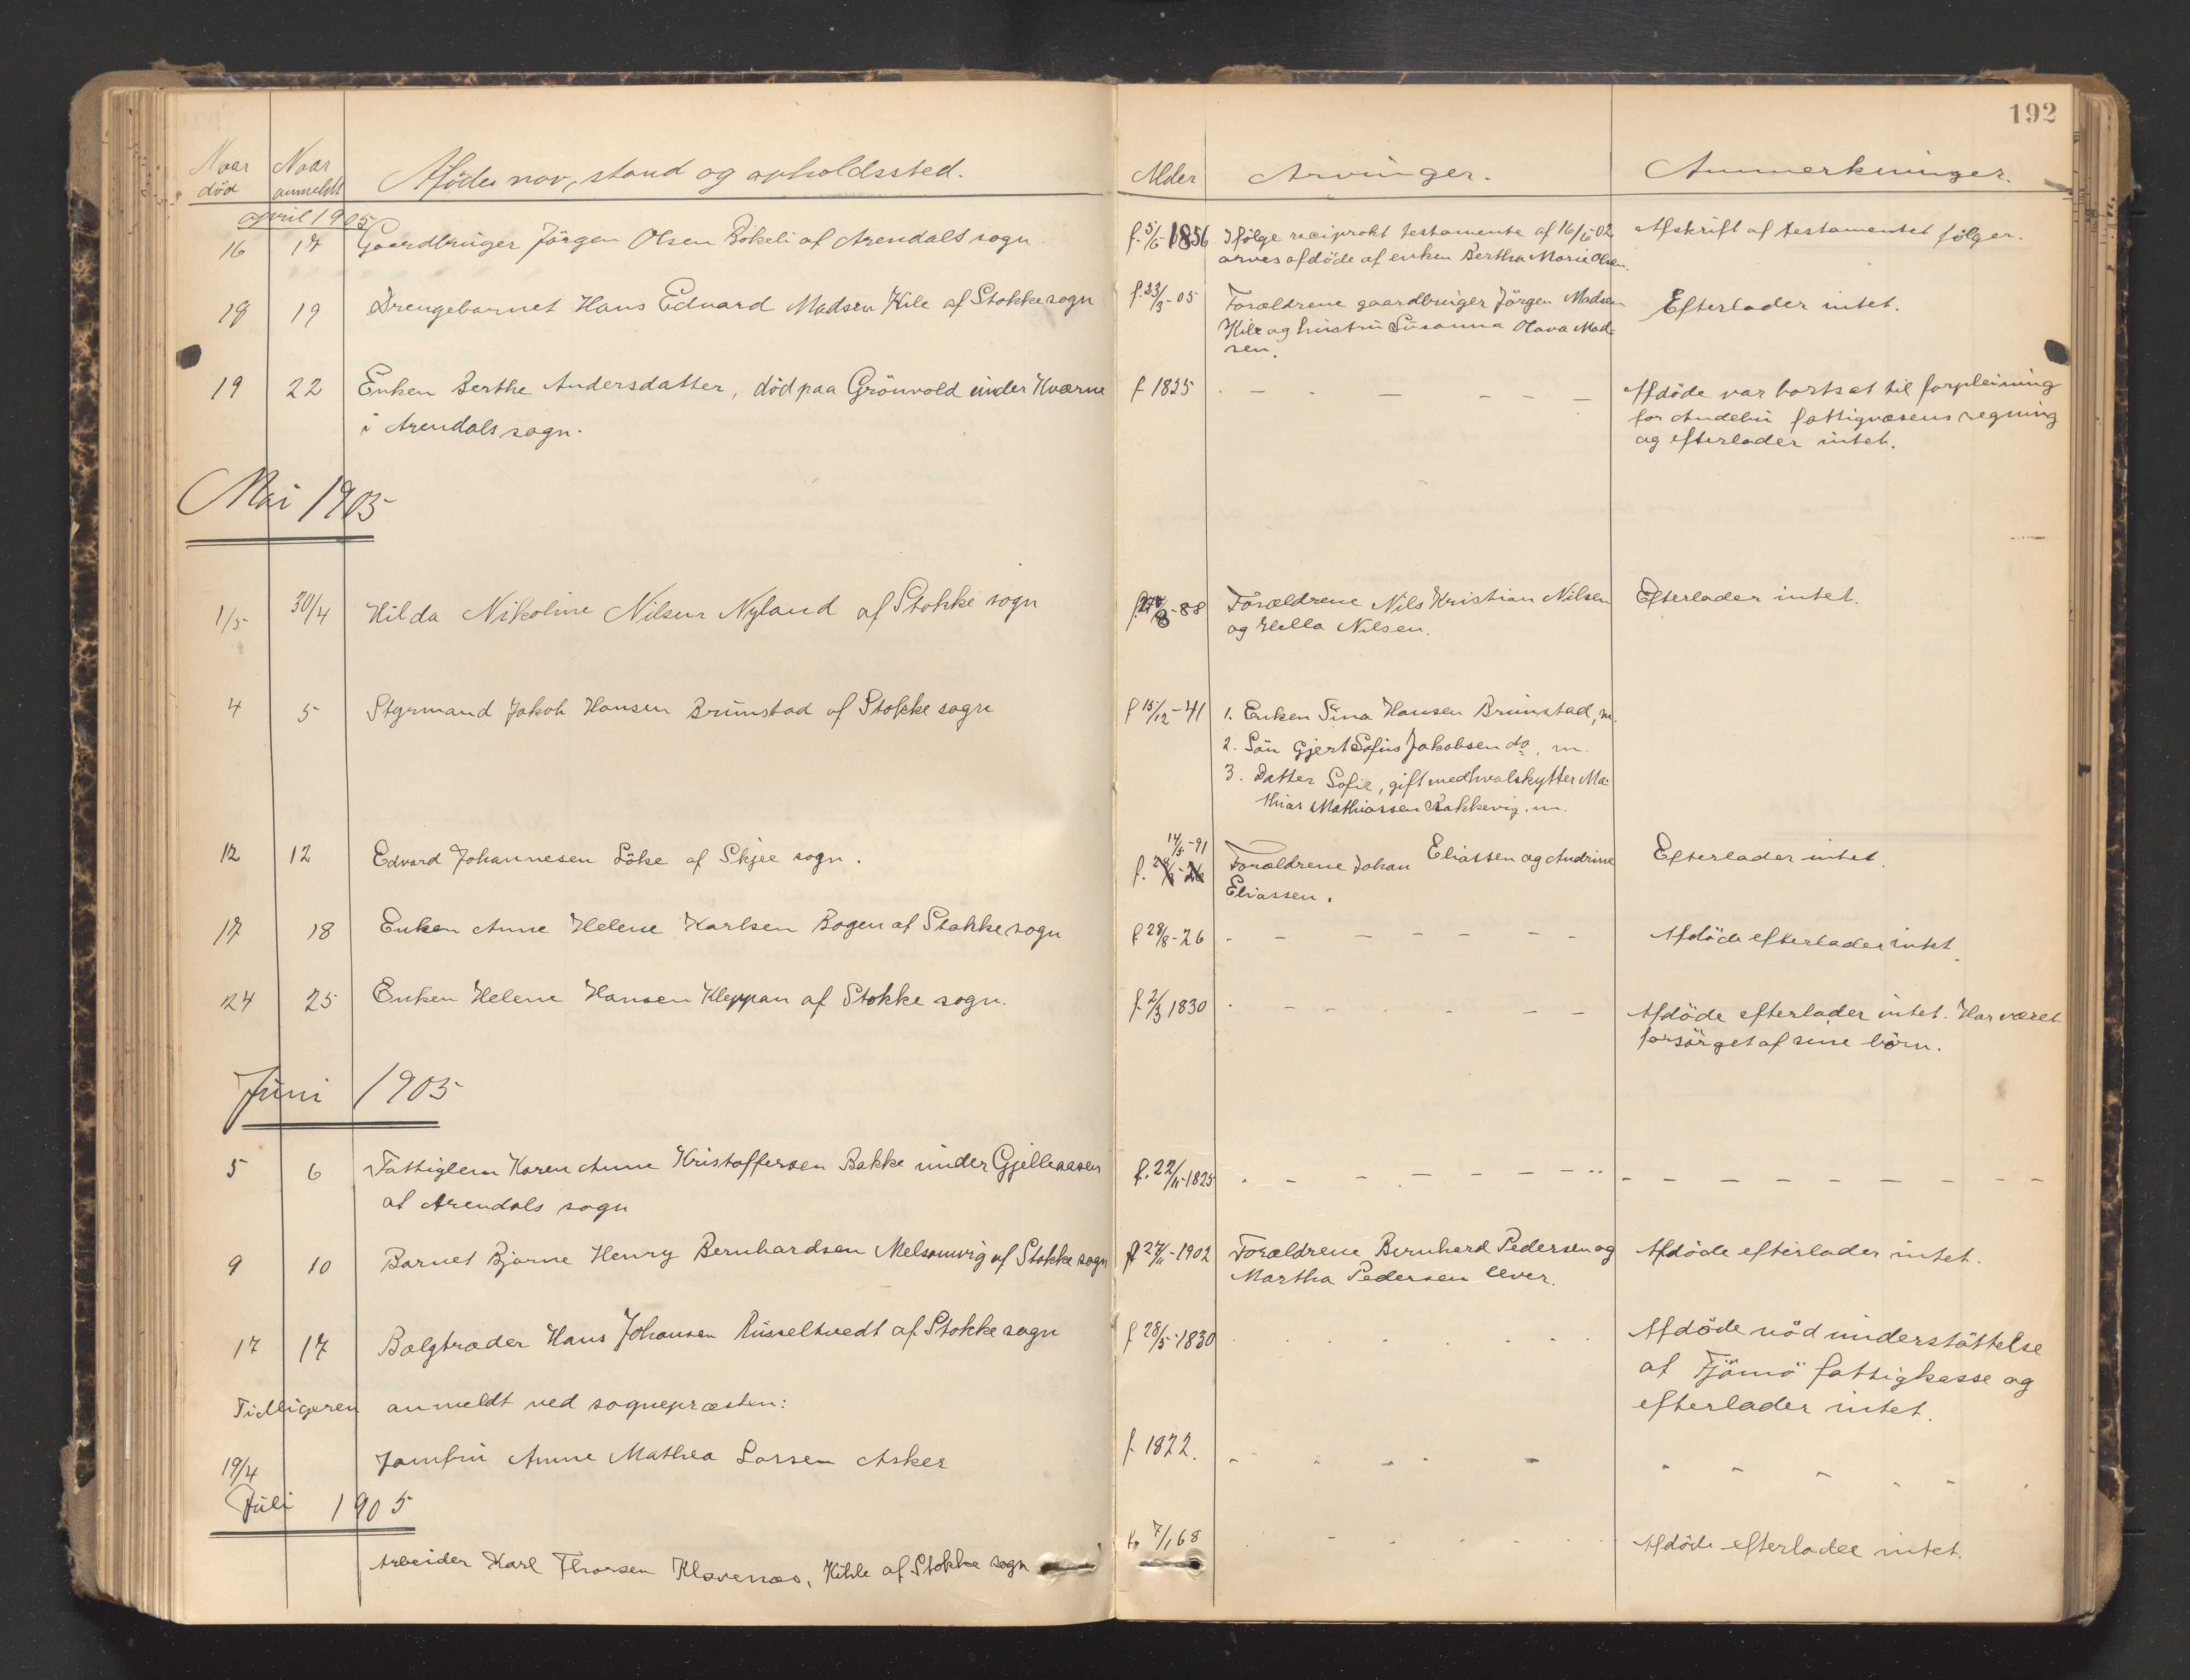 192
Naar død Naar anmeldt Afdødes navn, stand og opholdssted. Alder Arvinger. Anmerkninger.
april 1905
16 17 Gaardbruger Jörgen Olsen Bokeli af Arendals sogn f. 5/6 1856 Ifölge reciprokt testamente af 16/6 02 Afskrift af testamentet fölger.
arves afdöde af enken Bertha Marie Olsen.
19 19 Drengebarnet Hans Edvard Madsen Kile af Stokke sogn f. 23/3-05 Forældrene gaardbruger Jörgen Madsen Efterlader intet.
Kile og hustru Susanna Olava Mad-
sen.
19 22 Enken Berthe Andersdatter, död paa Grönvold under Hvarne f 1825 - - - - - Afdöde var bortsat til forpleining
i Arendals sogn. for Andebu fattigvæsens regning
og efterlader intet.
Mai 1905
1/5 30/4 Hilda Nikoline Nilsen Nyland af Stokke sogn f. 27/8-88 Forældrene Nils Kristian Nilsen Efterlader intet.
og Hella Nilsen.
4 5 Styrmand Jakob Hansen Brunstad af Stokke sogn f 15/12-41 1. Enken Sina Hansen Brunstad, m.
2. Sön Gjert Sofus Jakobsen do, m.
3. Datter Sofie, gift med hvalskytter Ma-
thias Mathiassen Bakkevig. m.
14/5-91
12 12 Edvard Johannesen Löke af Skjee sogn. f. Forældrene Johan Eliassen og Andrine Efterlader intet.
Eliassen.
17 18 Enken Anne Helene Karlsen Bogen af Stokke sogn f 28/8-26 - - - - - - - Afdöde efterlader intet.
24 25 Enken Helene Hansen Kleppan af Stokke sogn. f. 2/3 1830 - - - - - - Afdöde efterlader intet. Har været
forsörget af sine börn.
Juni 1905
5 6 Fattiglem Karen Anne Kristoffersen Bakke under Gjelleaasen f. 22/11-1825 - - - - - - - - - - - - -
af Arendals sogn
9 10 Barnet Bjarne Henry Bernhardsen Melsomvig af Stokke sogn f 27/11-1902 Forældrene Bernhard Pedersen og Afdöde efterlader intet.
Martha Pedersen lever.
17 17 Bælgtræder Hans Johansen Russeltvedt af Stokke sogn f 28/5-1830 Afdöde nöd understöttelse
af Tjömö fattigkasse og
efterlader intet.
Tidligere anmeldt ved sognepræsten:
19/4 Jomfru Anne Mathea Larsen Asker f. 1822. - - - - - - - - -
Juli 1905
Arbeider Karl Thorsen Klavenæs, Kihle af Stokke sogn f. 7/1 68 - - - - Afdöde efterlader intet.